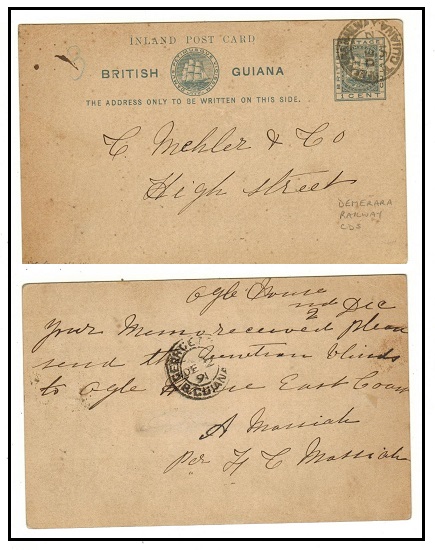 INLAND POST CARD
BRITISH GUIANA
THE ADDRESS ONLY TO BE WRITTEN ON THIS SIDE.
1 CENT
C Mehler & Co
High street
DEMERARA
RAILWAY
CDS
Ogle House
2nd Dec
Your Memo received please
send the Venetian blinds
to Ogle East Coast
A Massiah
Per H C Massiah